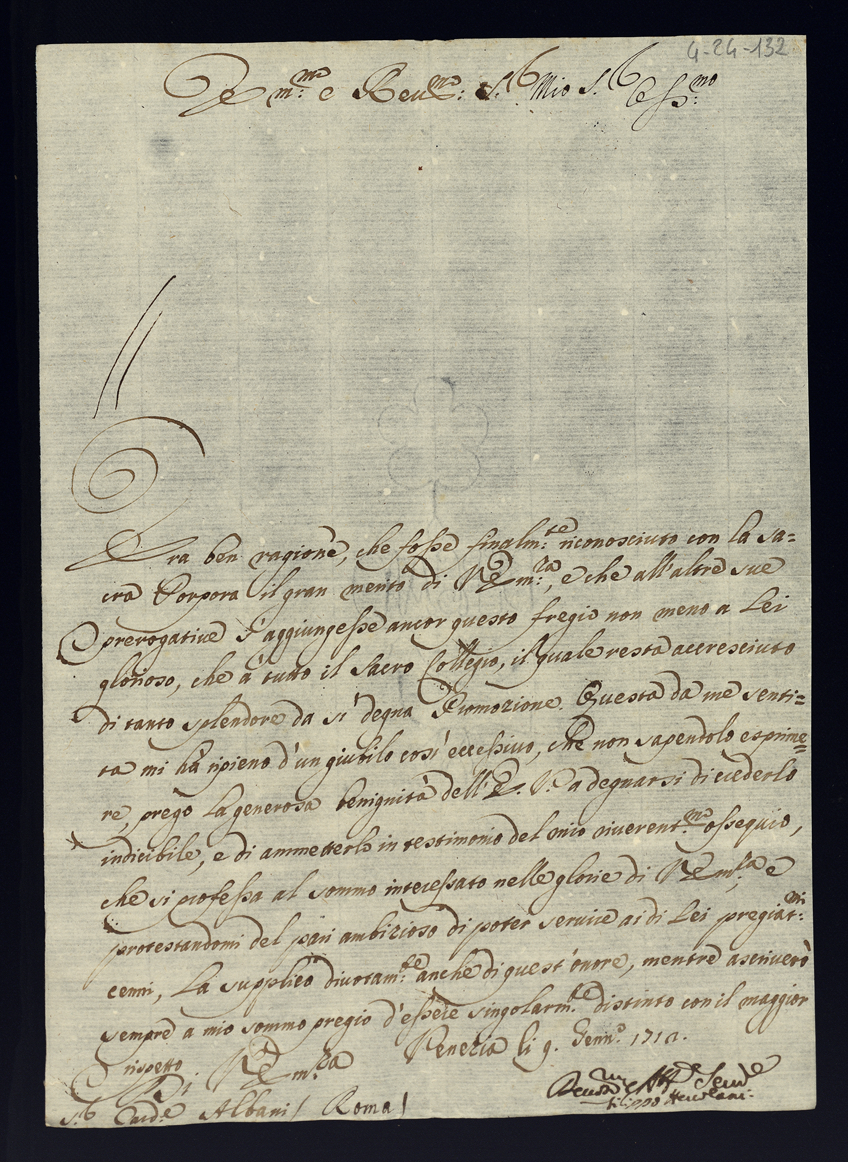 4-24-132
Em:mo e Reu:mo S.r Mio S.r Oss:mo
Era ben ragione, che fosse finalm:te riconosciuto con la sa=
cra Porpora il gran merito di V. Em:za, e che all'altre sue
prerogative s'aggiungesse ancor questo fregio non meno a Lei
glorioso, che à tutto il Sacro Collegio, il quale resta accresciuto
di tanto splendore da sì degna Promozione. Questa da me senti=
ta mi hà ripieno d'un giubilo così eccessivo, che non sapendolo esprime=
re, prego la generosa benignità dell'E. V. a degnarsi di crederlo
indicibile, e di ammetterlo in testimonio del mio riverent:mo ossequio,
che si professa al sommo interessato nelle glorie di V. Em:za e
protestandomi del pari ambizioso di poter servire ai di Lei pregiat:mi
cenni, La supplico divotam:te anche di quest'onore, mentre ascriverò
sempre a mio sommo pregio d'essere singolarm:te distinto con il maggior
rispetto
Di V. Em:za Venezia li 9. Genn:o 1712.
S.r Card:e Albani / Roma /
Deuot:mo Seru:e
Filippo Hercolani